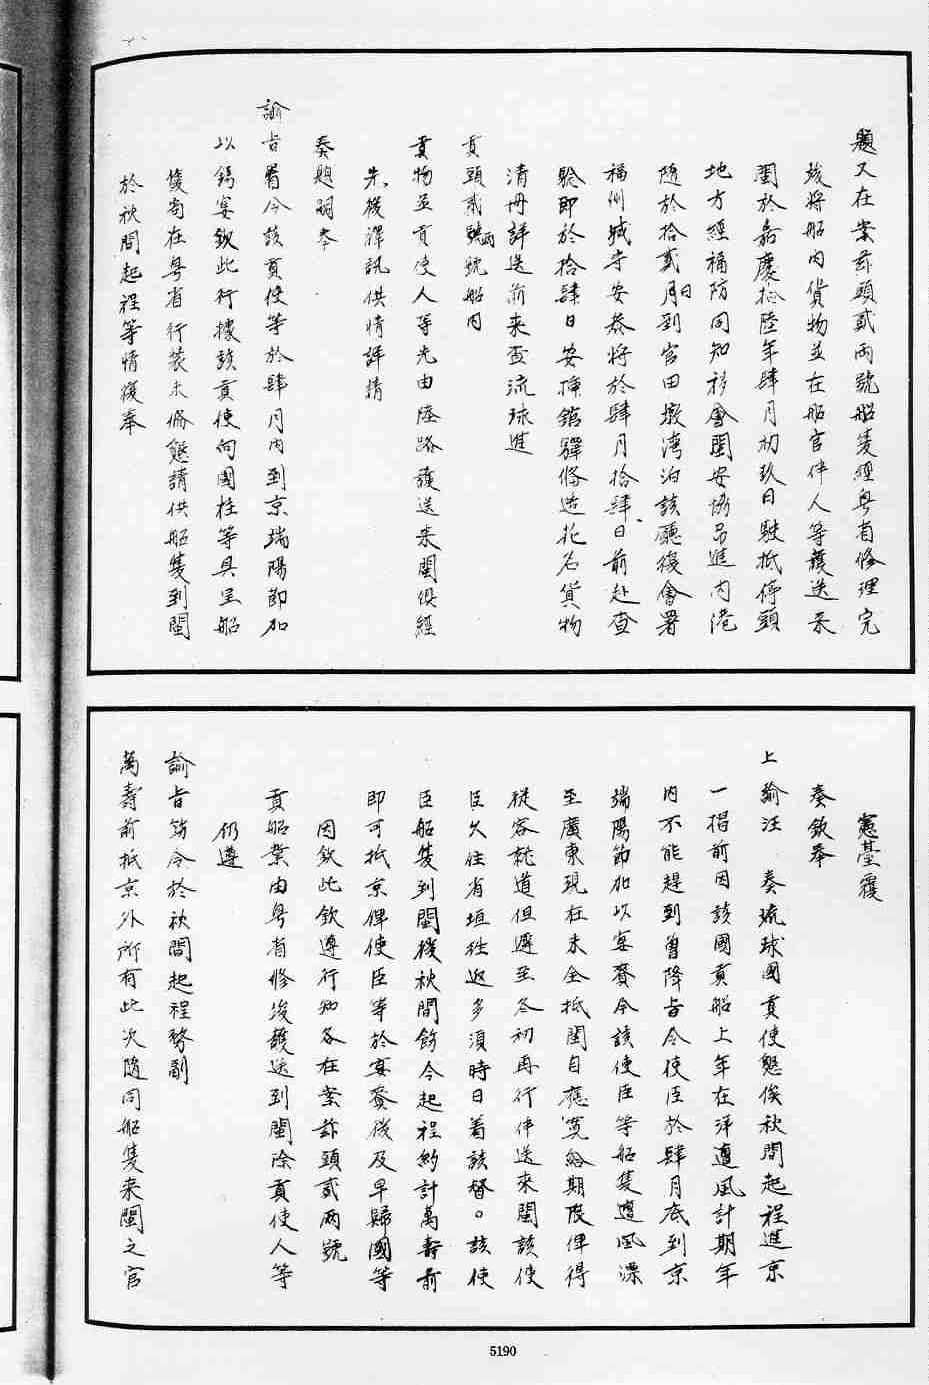 題又在案茲頭貳兩號船隻經粵省修理完
竣將船內貨物並在船官伴人等護送來
閩於嘉慶拾陸年肆月初玖日駛抵停頭
地方經福防同知移會閩安協吊進內港
隨於拾貳日到官田墩灣泊該廳復會署
福州城守安泰將於肆月拾肆日前赴查
驗即於拾肆日安揷館驛俻造花名貨物
清冊詳送前來查流球進
貢頭貳號兩號船內
貢物並貢使人等先由陸路護送來閩俱經
先後譯訊供情詳請
奏題嗣奉
諭旨著令該貢使等於肆月內到京端陽節加
以錫宴欽此行據該貢使向國柱等具呈船
隻尚在粵省行裝未俻懇請供船隻到閩
於秋間起程等情復奉
憲臺覆
奏欽奉
上諭汪 奏琉球國貢使懇俟秋間起程進京
一摺前因該國貢船上年在洋遭風計期年
內不能趕到曾降旨令使臣於肆月底到京
端陽節加以宴賚今該使臣等船隻遭風漂
至廣東現在未全抵閩自應寬給期限俾得
從容就道但遲至冬初再行伴送來閩該使
臣久住省垣往返多須時日着該督。該使
臣船隻到閩後秋間飭令起程約計萬壽前
即可抵京俾使臣等於宴賚後及早歸國等
因欽此欽遵行知各在案茲頭貳兩號
貢船業由粵省修竣護送到閩除貢使人等
仍遵
諭旨飭令於秋間起程務副
萬壽前抵京外所有此次隨同船隻來閩之官
5190